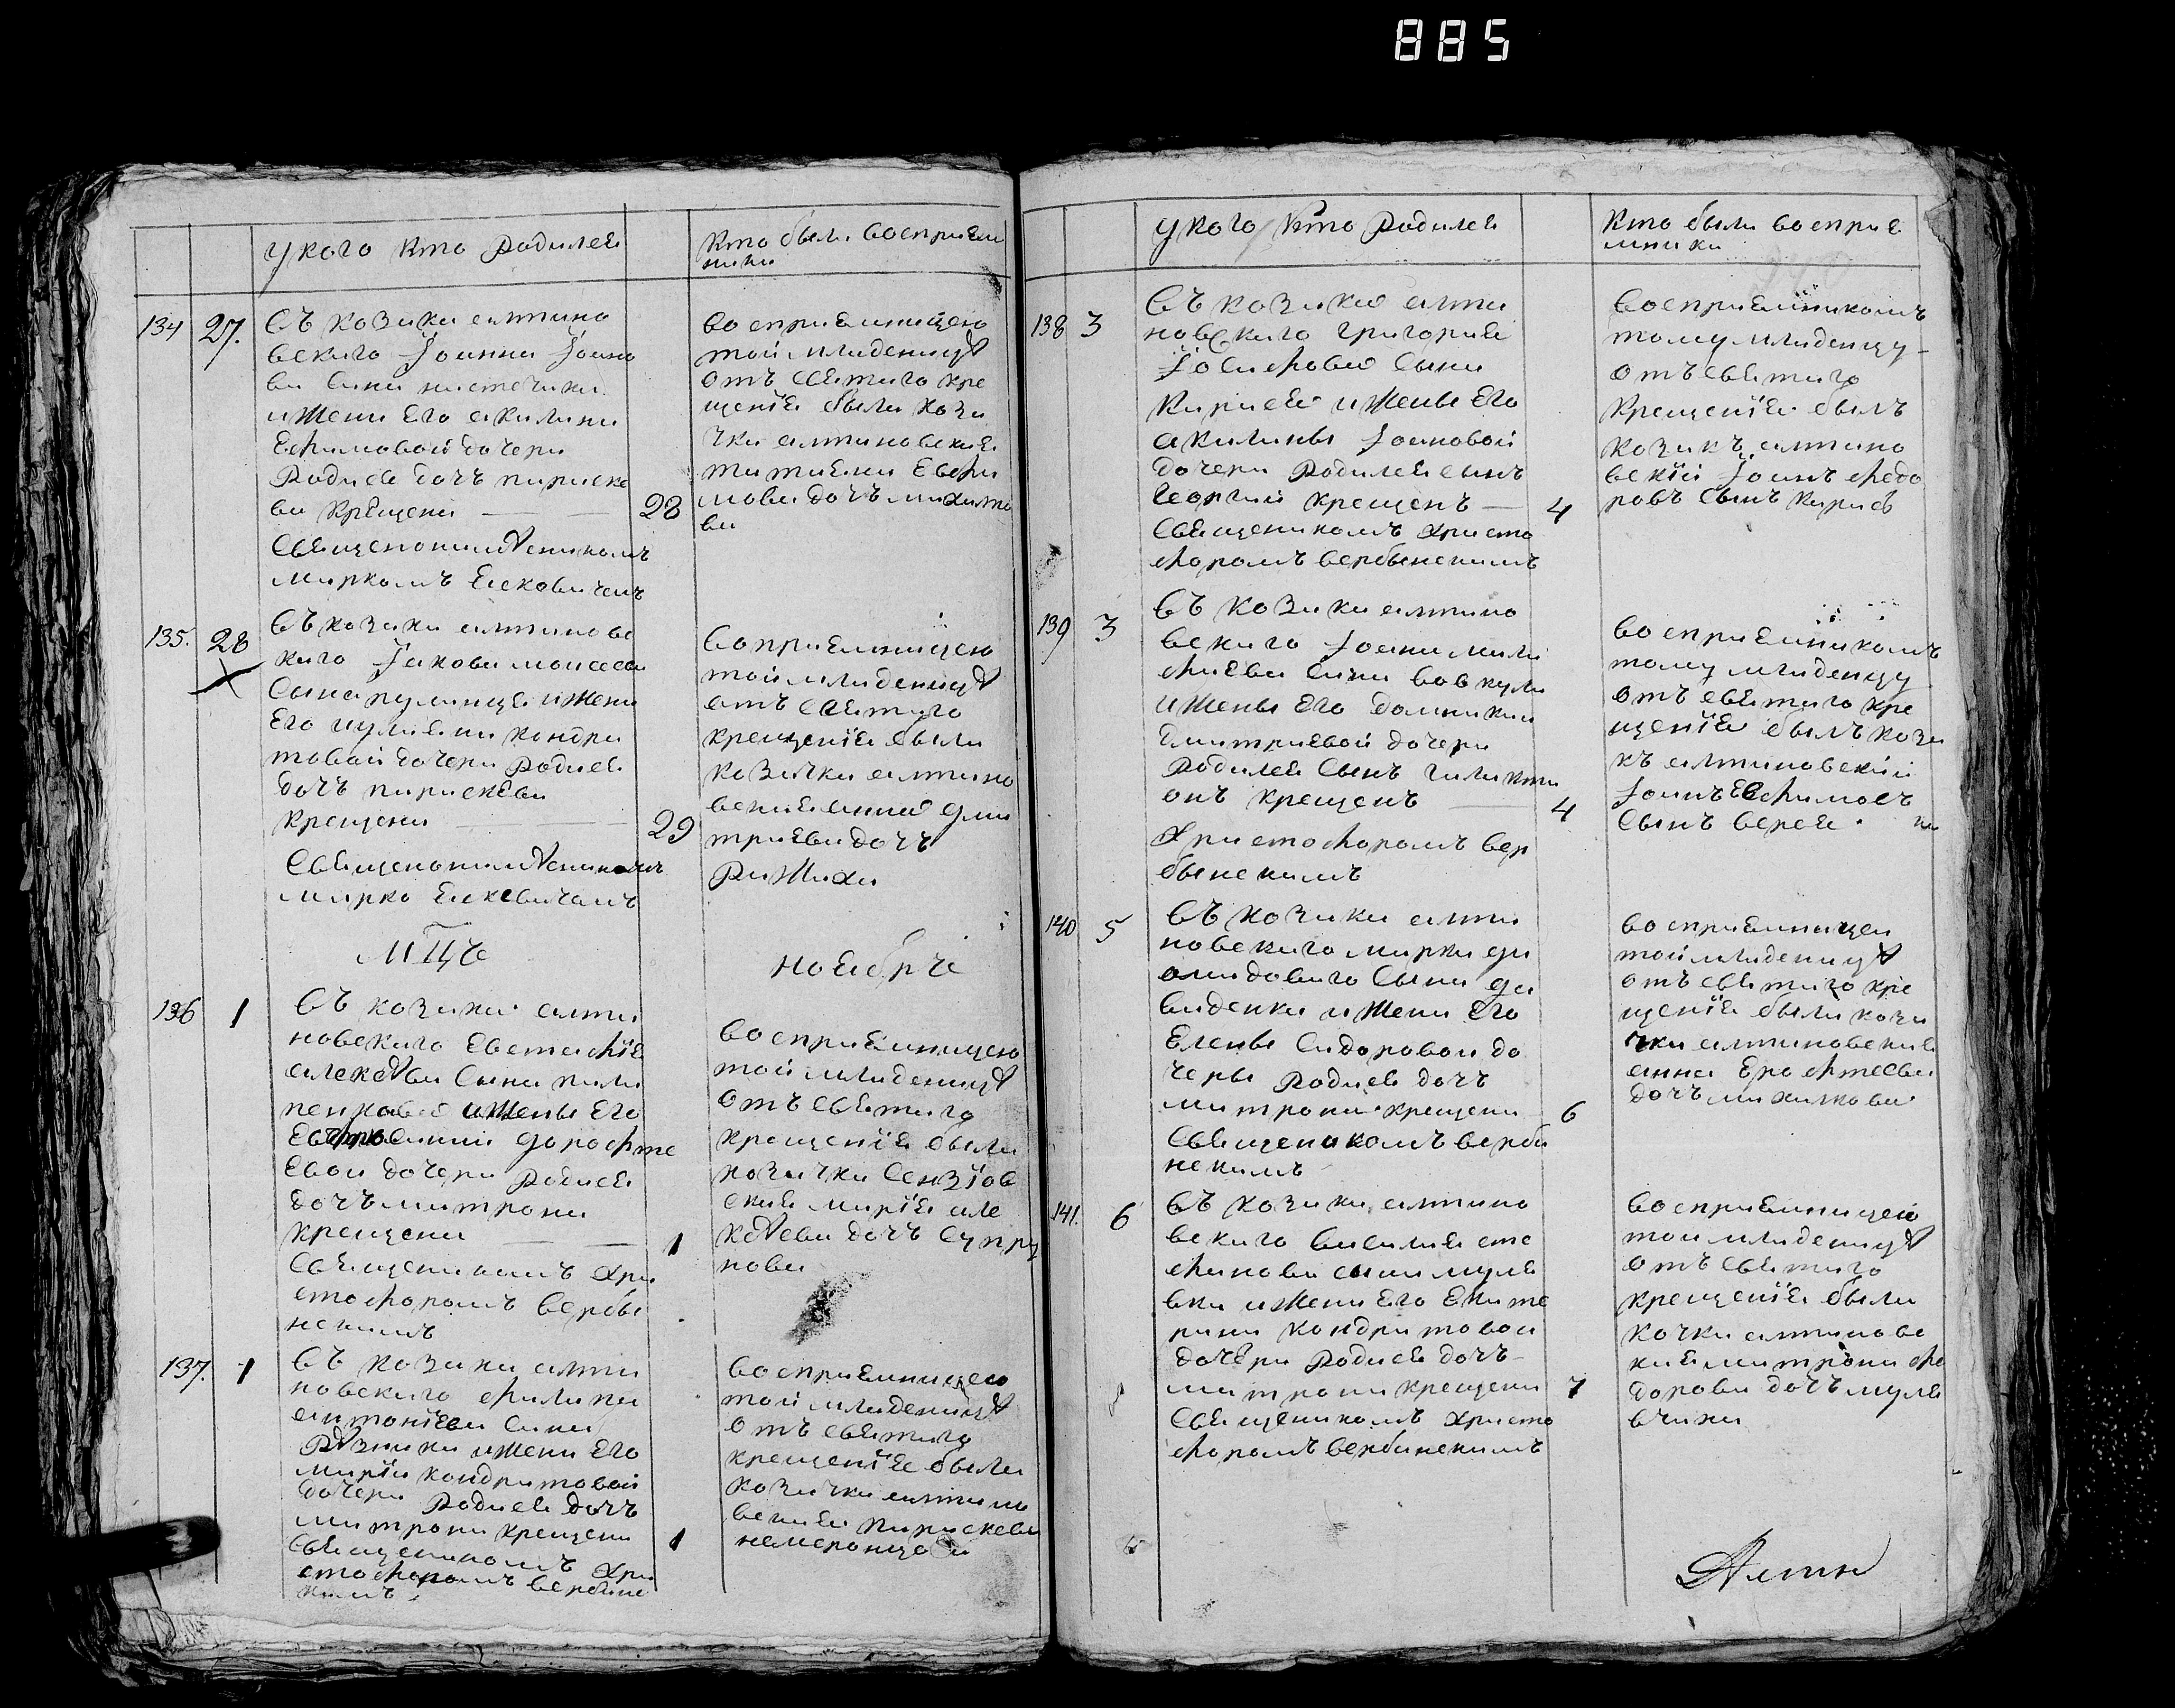 885
У кого кто родился
Кто были восприем
ники
134 27. Въ козака алтино
вского Іоанна Іоано
ва сина настечки
и жени его акилини
Ефимовой дочери
Родися дочъ параске
ва крещена 28
Священонамѣсникомъ
маркомъ Есковичемъ
восприемницею
той младеницѣ
отъ святаго кре
щенія была коза
чка алтиновския
татияна Евфи
мова дочъ махто
ва
135. 28 Въ козака алтиновс
каго Іакова моисеева
сына пулинця и жени
его иулияни кондра
товой дочери родися
дочъ параскева
крещена 29
Священонамѣсникомъ
марко Ескевичамъ
воприемницею
той младеницѣ
отъ святаго
крещенія была
козачка алтино
вския анна дми
триева дочъ
Рижиха
мцъ
ноября
136 1 Въ козака алти
новскаго Евстафія
алексѣва сина пили
пенкова и жены его
дорофте
евой дочери родися
дочъ матрона
крещена 1
Священикомъ хри
стофоромъ вербы
нскимъ
восприемницею
той младеницѣ
отъ святаго
крещенія была
козачка сензіов
ския марія але
ксѣева дочъ супру
нова
137. 1 Въ козака алти
новскаго филипа
антонієва сина
Рѣзника и жени его
маріи кондратовой
дочери родися дочъ
матрона крещена 1
священикомъ хри
стофоромъ вербине
кимъ
восприемницею
той младеницѣ
отъ святаго
крещенія была
козачка алтино
вская параскева
У кого кто родился
Кто были восприе
мники
138 3 Въ козака алти
новского григория
Іосифова сына
Кириея и жены его
акилины Іоановой
дочери родился сынъ
георгий крещенъ 4
священикомъ христо
форомъ вербынскимъ
восприемникомъ
тому младенцу
отъ святаго
крещенія былъ
козакъ алтино
вскій Іоанъ федо
ровъ сынъ кириев
139 3 Въ козака алтино
вскаго Іоана мала
фиева сина вовкули
и жены его домникии
Дмитриевой дочери
родился сынъ галакти
онъ крещенъ 4
христофоромъ вер
бынскимъ
восприемникомъ
тому младенцу
отъ святаго кре
щенія былъ коза
къ алтиновский
Іоанъ Евфимовъ
сынъ
140 5 Въ козака алти
новскаго марка ди
омидового сына да
виденка и жени его
Елены сидоровой до
черы родися дочъ
матрона крещена 6
священикомъ верби
нскимъ
восприемницеи
той младеницѣ
отъ святаго кре
щенія была коза
чка алтиновския
анна Ерофтеева
дочъ михилкова
141. 6 Въ козака алтино
вскаго василия сте
фанова сина муля
вки и жени его Екате
рини кондратовои
дочери родися дочъ
матрона крещена 7
священикомъ христо
форомъ вербинскимъ
восприемницею
той младеницѣ
отъ святаго
крещенія была
кочка алтиновс
кия матрона фе
дорова дочъ муля
вчина